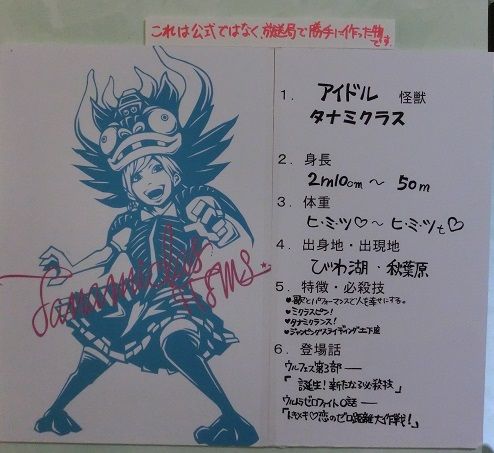 これは公式ではなく、放送局で勝手に作った物です。
1. アイドル 怪獣
タナミクラス
2. 身長
2m10cm ～ 50m
3. 体重
ヒ・ミ・ツ♡ ～ ヒ・ミ・ツt♡
4. 出身地・出現地
びわ湖・秋葉原
5. 特徴・必殺技
♥歌とパフォーマンスで人を幸せにする。
♥ミクラスピン!
♥タナミクランス!
♥ジャンピングスライディング土下座
6. 登場話
ウルフェス第3部 ──
「誕生!新たなる必殺技」
ウルトラゼロファイト0話 ──
「トキメキ♡恋のゼロ距離大作戦!」